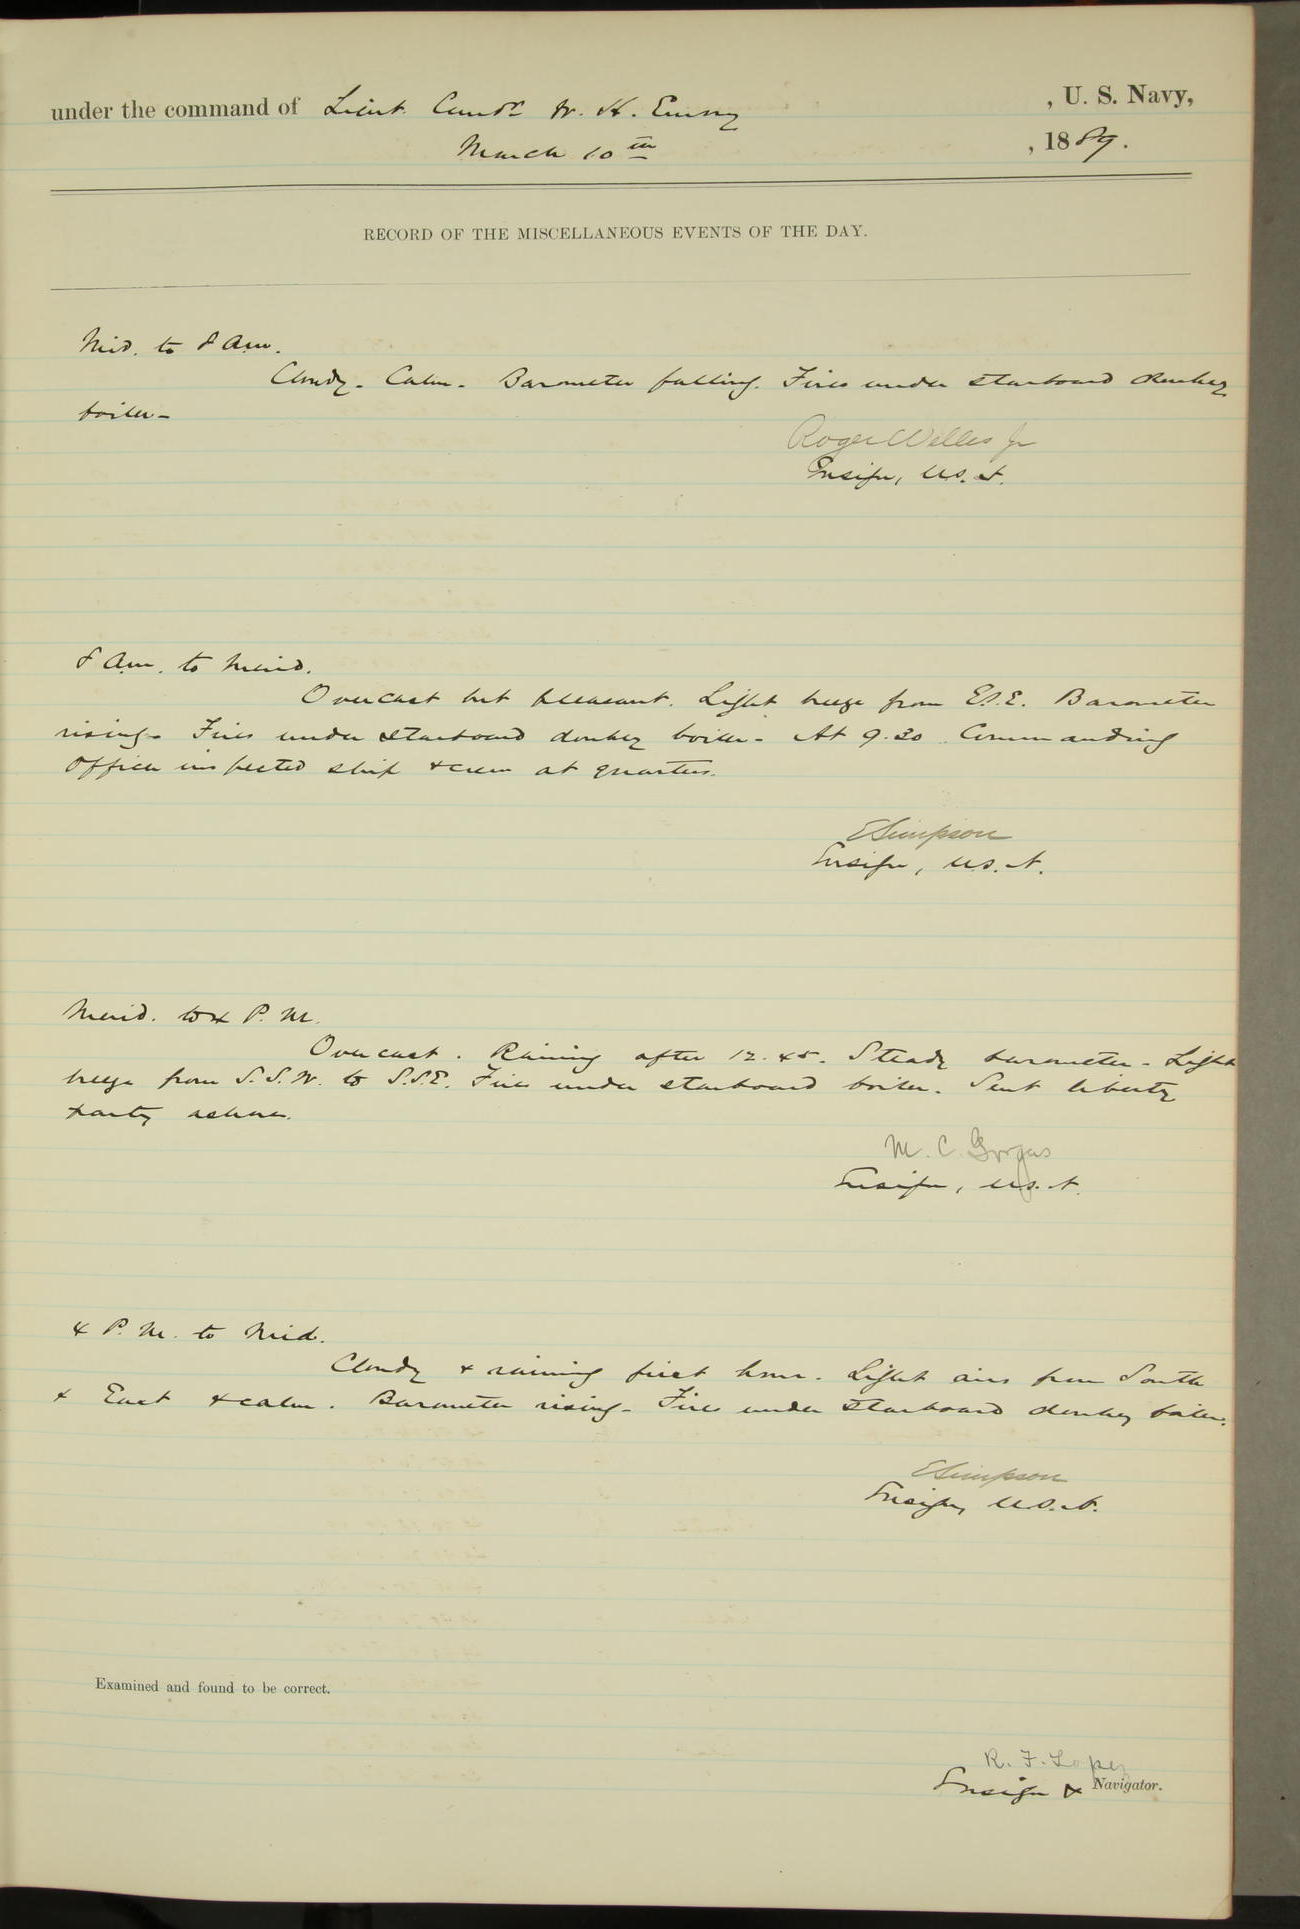 under the command of Lieut. Comdr W. H. Emory, U. S. Navy,
March 10th, 1889.
RECORD OF THE MISCELLANEOUS EVENTS OF THE DAY.
Mid. to 8 A.m.
Cloudy. Calm. Barometer falling. Fires under starboard donkey
boiler -
Roger Welles Jr
Ensign, U.S.N.
8 A.m. to Merid.
Overcast but pleasant. Light breeze from E.S.E. Barometer
rising - Fires under starboard donkey boiler - At 9.30 Commanding
Officer inspected ship & crew at quarters.
E Simpson
Ensign, U.S.N.
Merid. to 4 P.M.
Overcast. Raining after 12.45. Steady barometer - Light
breeze from S.S.W. to S.S.E. Fires under starboard boiler. Sent liberty
party ashore.
M. C. Gorgas
Ensign, U.S.N.
4 P.M. to Mid.
Cloudy & raining first hour. Light airs from South
& East & calm. Barometer rising - Fires under starboard donkey boiler.
E Simpson
Ensign, U.S.N.
Examined and found to be correct.
R. F. Lopez
Ensign & Navigator.